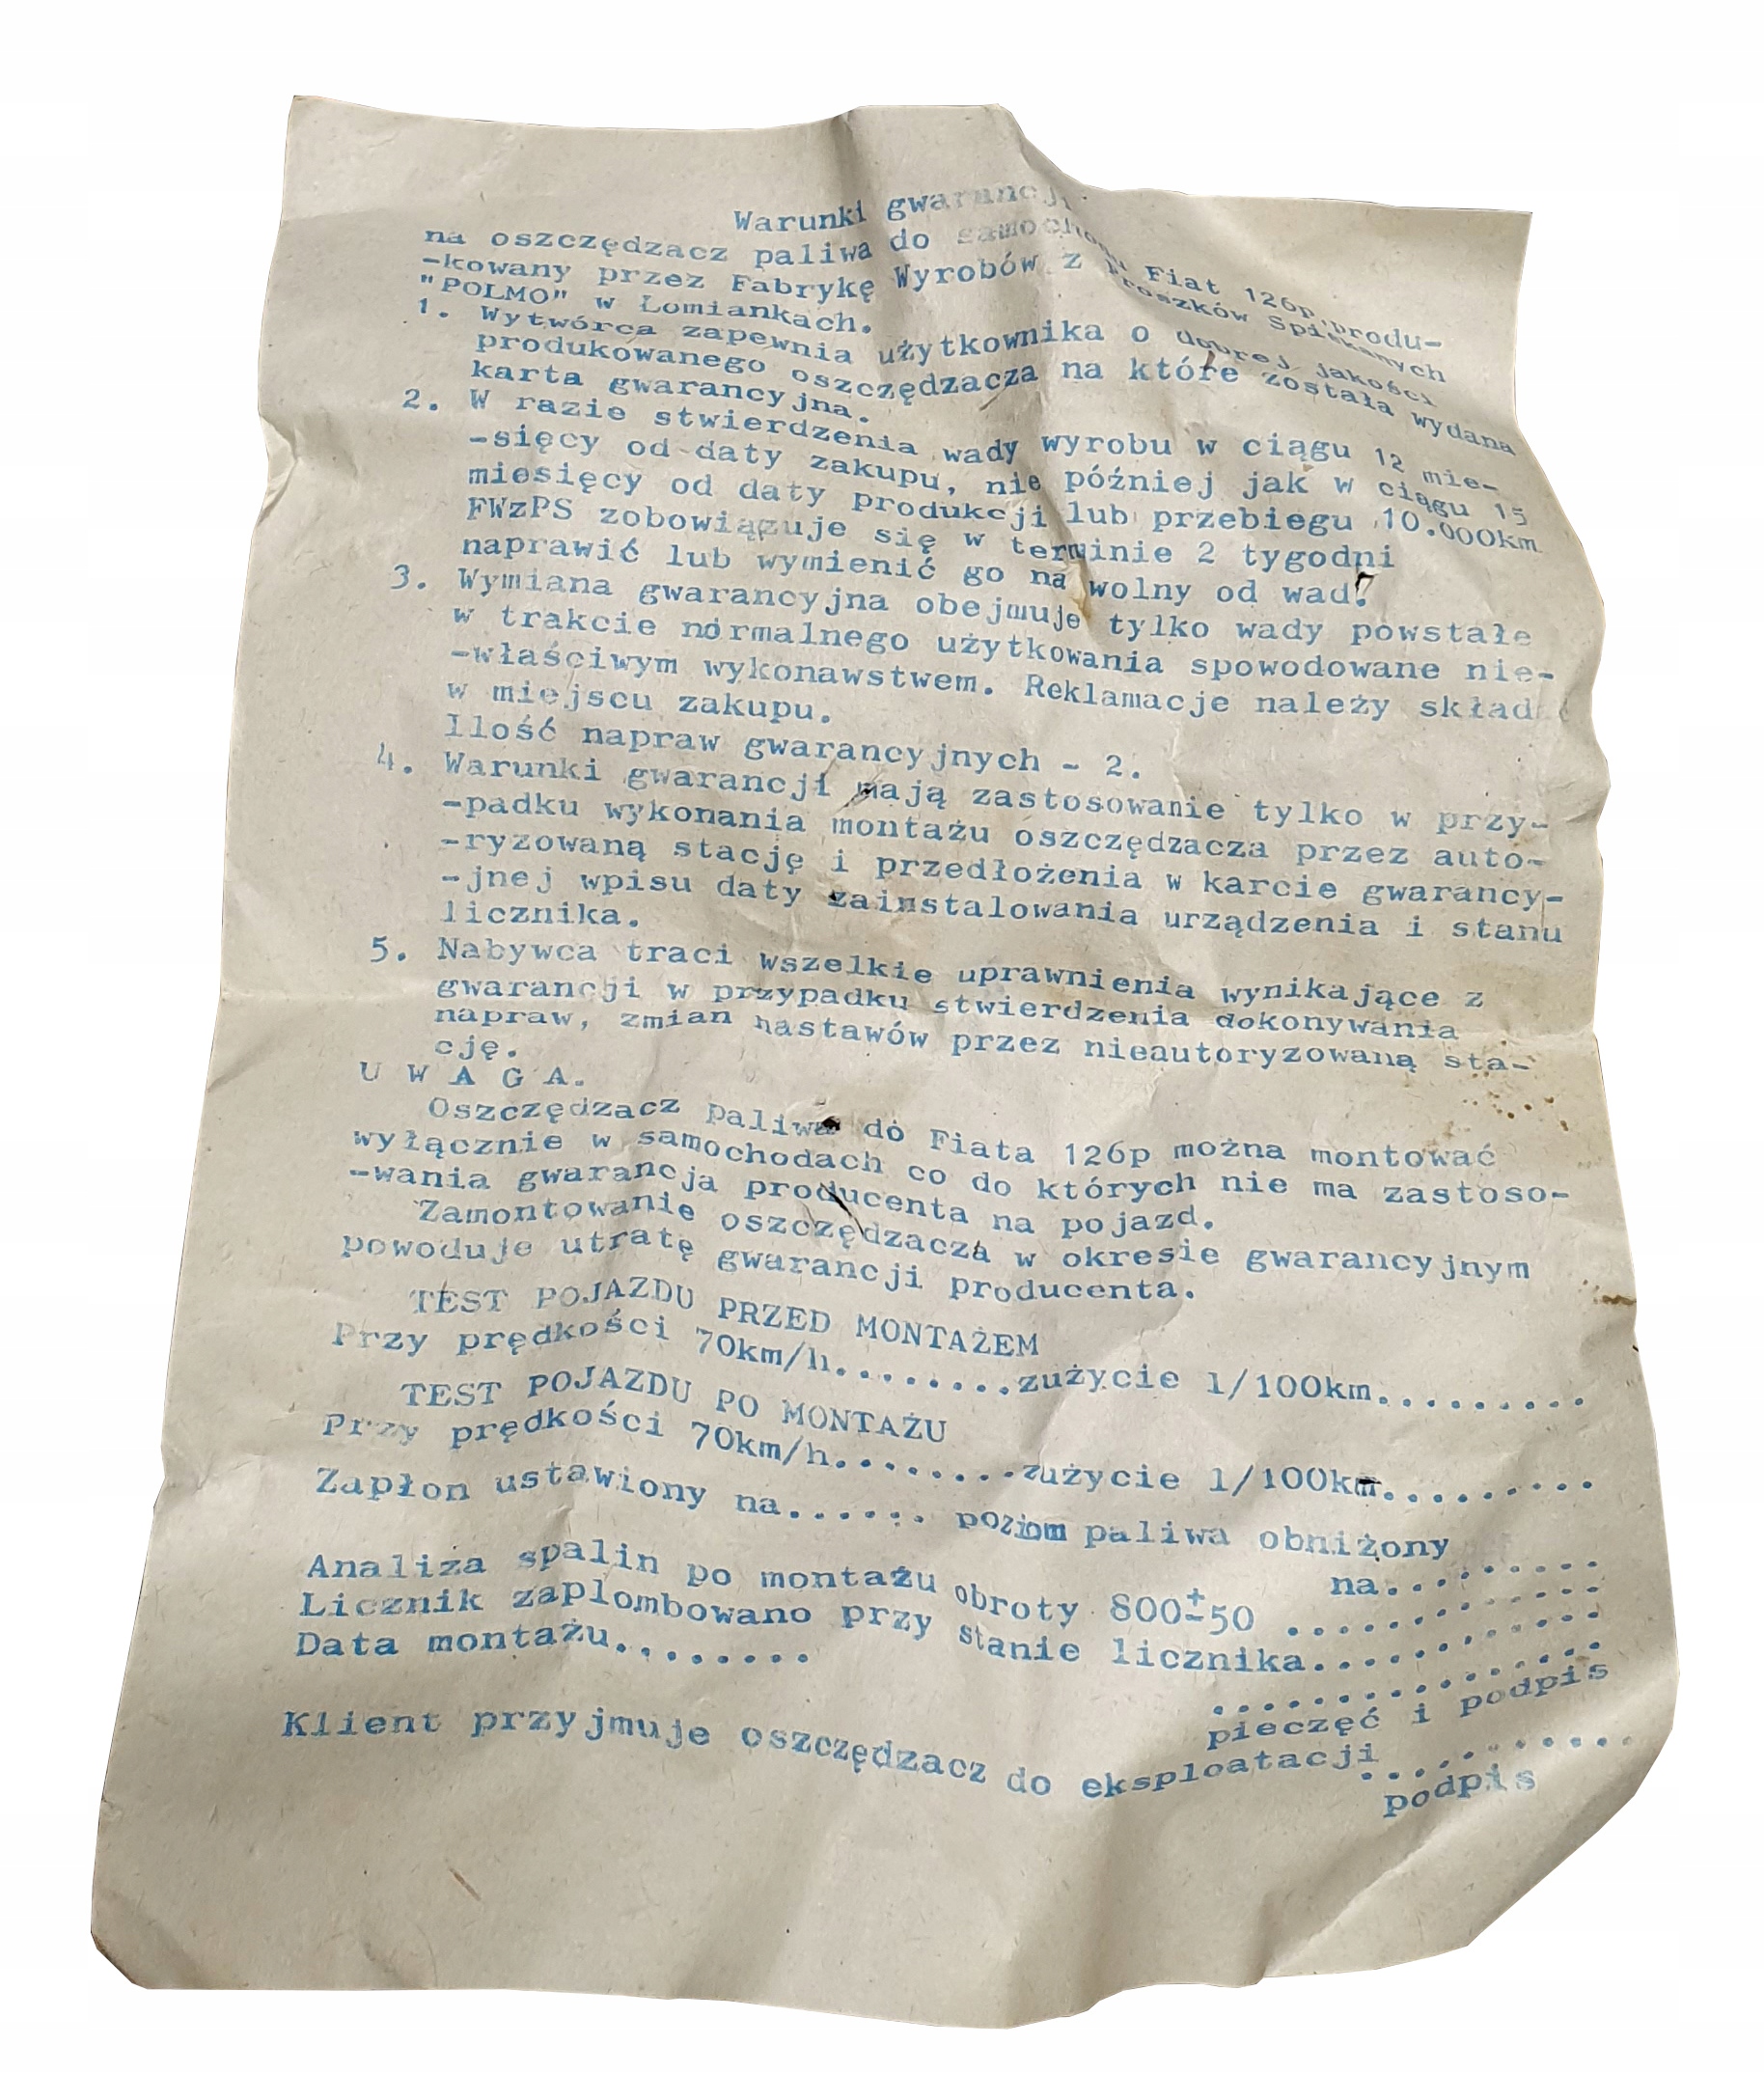 Warunki gwarancji
na oszczędzacz paliwa do samochodu Fiat 126p,produ-
-kowany przez Fabrykę Wyrobów z Proszków Spiekanych
"POLMO" w Łomiankach.
1. Wytwórca zapewnia użytkownika o dobrej jakości
produkowanego oszczędzacza na które została wydana
karta gwarancyjna.
2. W razie stwierdzenia wady wyrobu w ciągu 12 mie-
-sięcy od daty zakupu, nie później jak w ciągu 15
miesięcy od daty produkcji lub przebiegu 10.000km
FWzPS zobowiązuje się w terminie 2 tygodni
naprawić lub wymienić go na wolny od wad.
3. Wymiana gwarancyjna obejmuje tylko wady powstałe
w trakcie normalnego użytkowania spowodowane nie-
-właściwym wykonawstwem. Reklamacje należy składać
w miejscu zakupu.
Ilość napraw gwarancyjnych - 2.
4. Warunki gwarancji mają zastosowanie tylko w przy-
-padku wykonania montażu oszczędzacza przez auto-
-ryzowaną stację i przedłożenia w karcie gwarancy-
-jnej wpisu daty zainstalowania urządzenia i stanu
licznika.
5. Nabywca traci wszelkie uprawnienia wynikające z
gwarancji w przypadku stwierdzenia dokonywania
napraw, zmian nastawów przez nieautoryzowaną sta-
cję.
U W A G A.
Oszczędzacz paliwa do Fiata 126p można montować
wyłącznie w samochodach co do których nie ma zastoso-
-wania gwarancja producenta na pojazd.
Zamontowanie oszczędzacza w okresie gwarancyjnym
powoduje utratę gwarancji producenta.
TEST POJAZDU PRZED MONTAŻEM
Przy prędkości 70km/h........zużycie l/100km.........
TEST POJAZDU PO MONTAŻU
Przy prędkości 70km/h........zużycie l/100km.........
Zapłon ustawiony na...... poziom paliwa obniżony
na.........
Analiza spalin po montażu obroty 800±50 ............
Licznik zaplombowano przy stanie licznika...........
Data montażu........
.............
pieczęć i podpis
Klient przyjmuje oszczędzacz do eksploatacji
...........
podpis